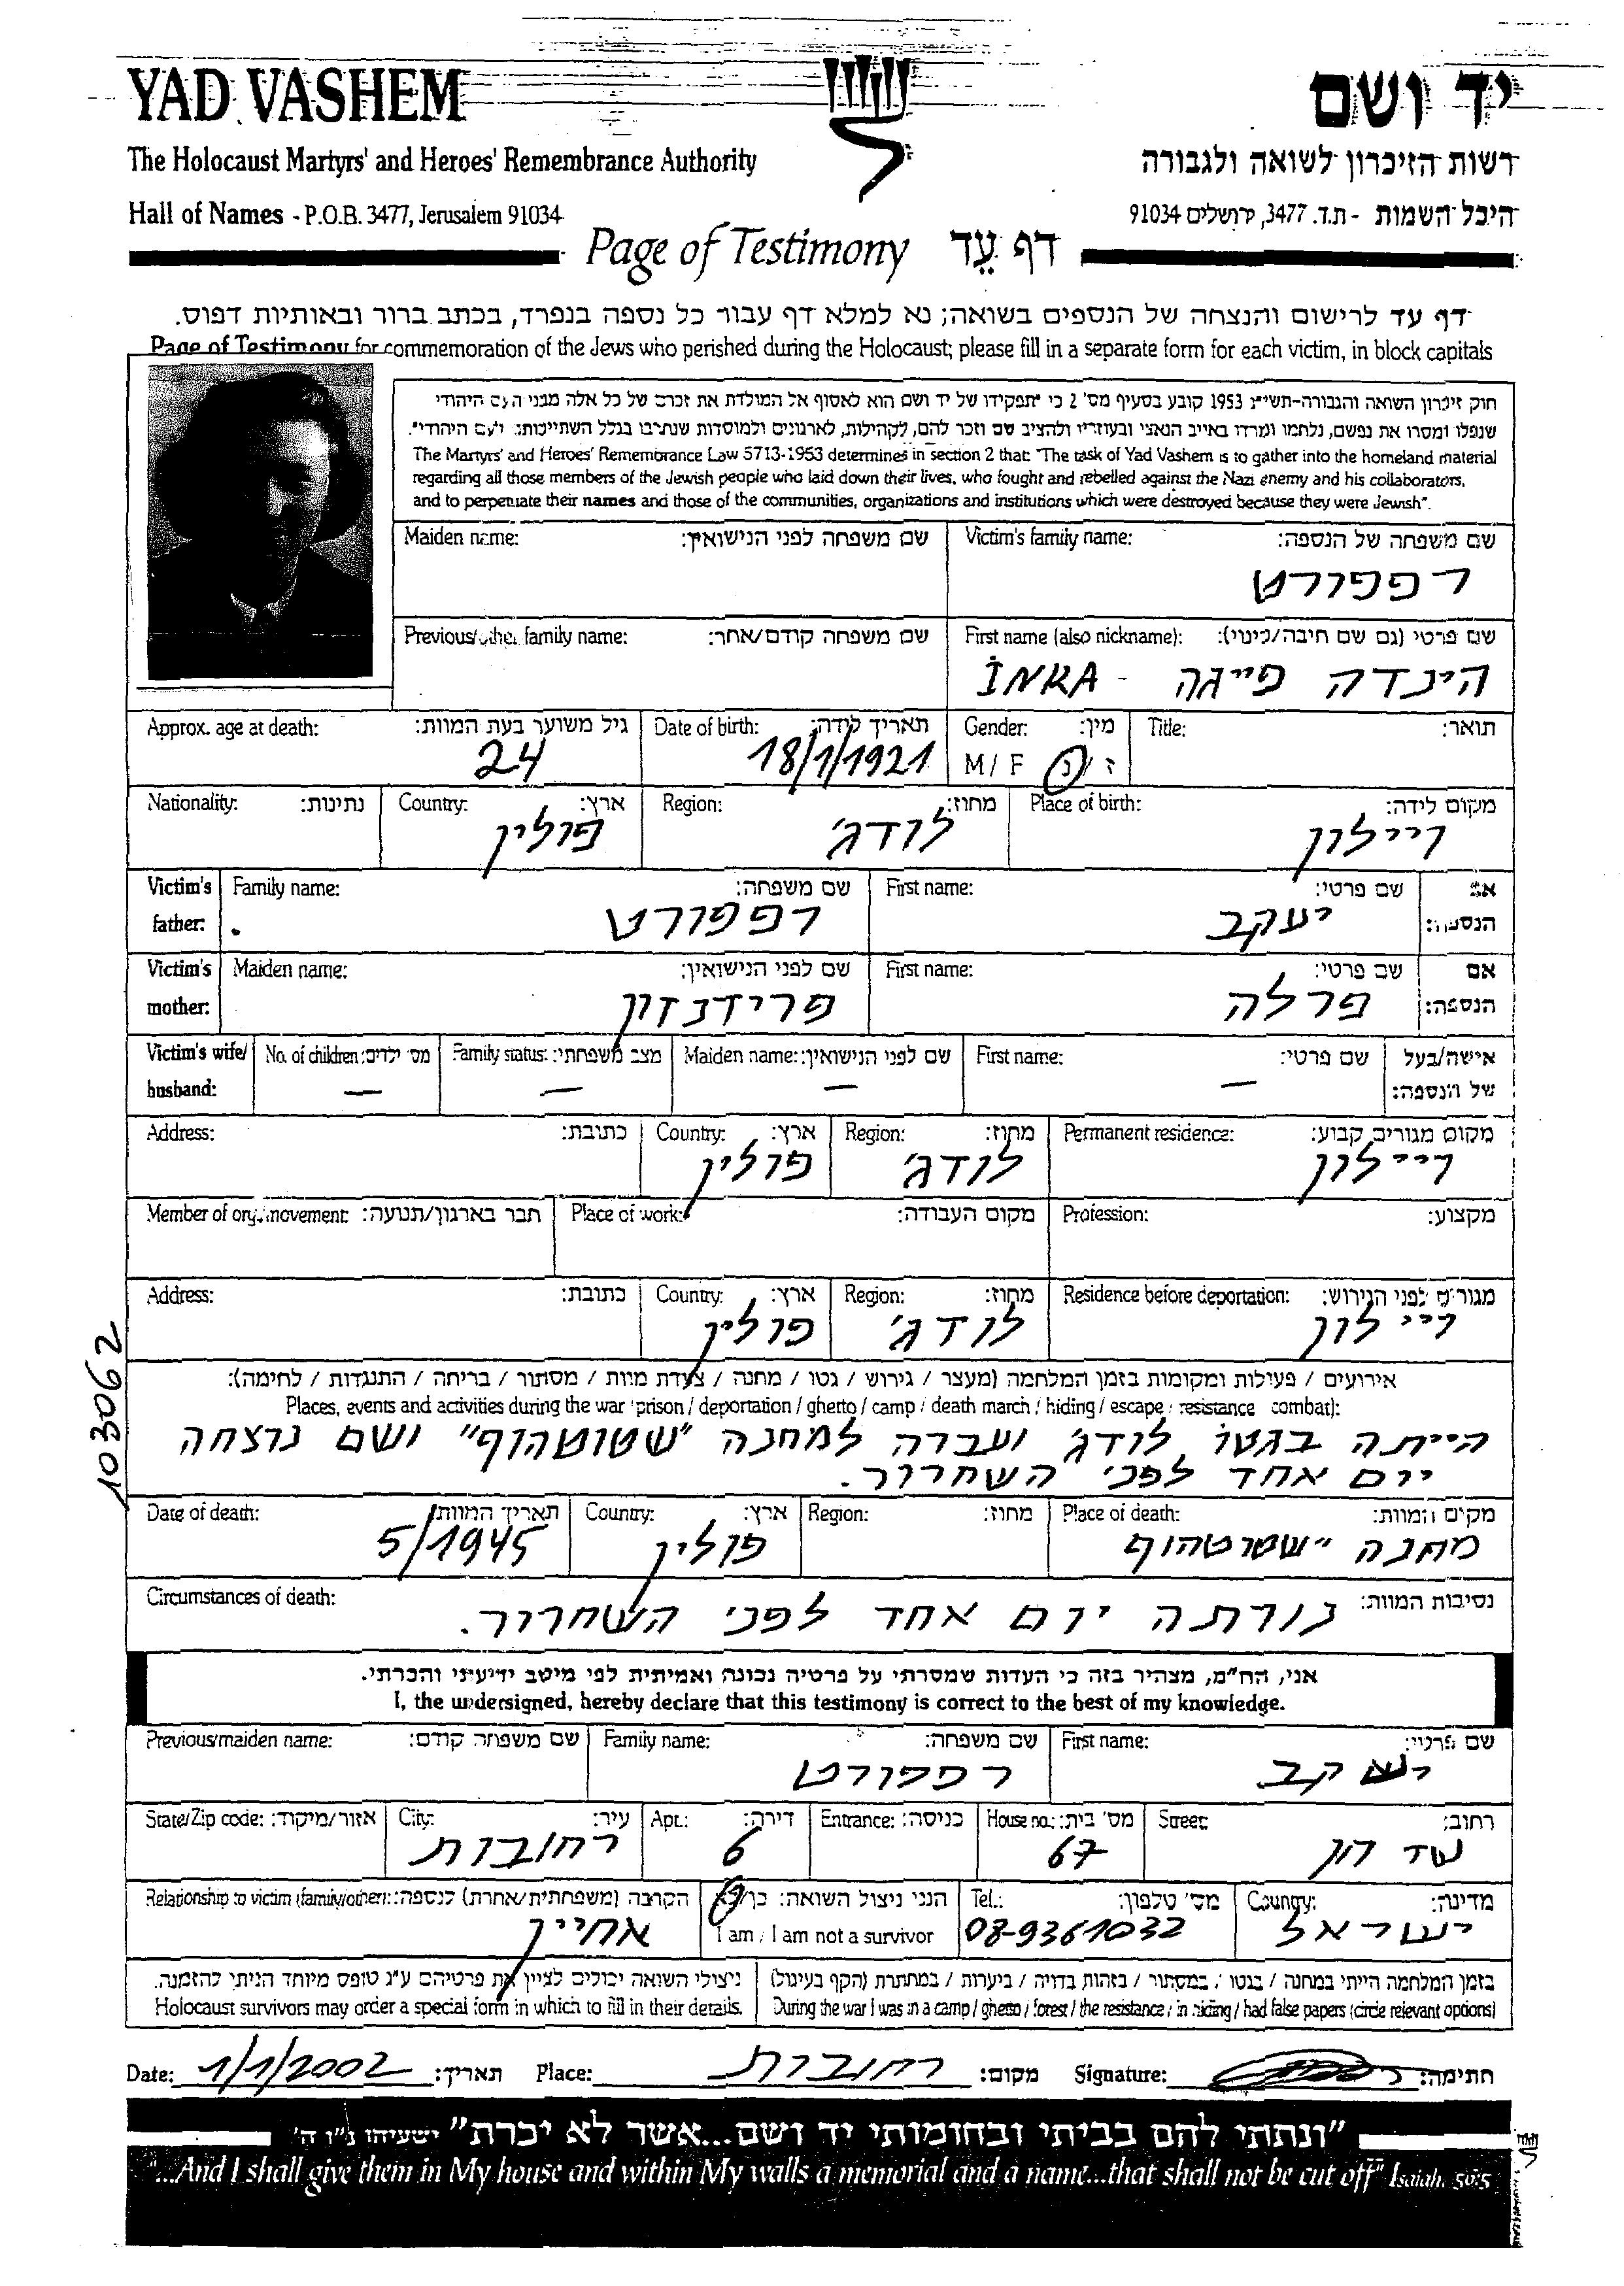 YAD VASHEM
יד ושם
The Holocaust Martyrs' and Heroes' Remembrance Authority
רשות הזיכרון לשואה ולגבורה
Hall of Names - P.O.B. 3477, Jerusalem 91034
היכל השמות - ת.ד. 3477, ירושלים 91034
Page of Testimony דף עֵד
דף עד לרישום והנצחה של הנספים בשואה; נא למלא דף עבור כל נספה בנפרד, בכתב ברור ובאותיות דפוס.
Page of Testimony for commemoration of the Jews who perished during the Holocaust; please fill in a separate form for each victim, in block capitals
חוק זיכרון השואה והגבורה-תשי"ג 1953 קובע בסעיף מס' 2 כי "תפקידו של יד ושם הוא לאסוף אל המולדת את זכרם של כל אלה מבני העם היהודי
שנפלו ומסרו את נפשם, נלחמו ומרדו באייב הנאצי ובעוזריו ולהציב שם וזכר להם, לקהילות, לארגונים ולמוסדות שנחרבו בגלל השתייכותם לעם היהודי".
The Martyrs' and Heroes' Remembrance Law 5713-1953 determines in section 2 that: "The task of Yad Vashem is to gather into the homeland material
regarding all those members of the Jewish people who laid down their lives, who fought and rebelled against the Nazi enemy and his collaborators,
and to perpetuate their names and those of the communities, organizations and institutions which were destroyed because they were Jewish".
Maiden name: שם משפחה לפני הנישואין:
Victim's family name: שם משפחה של הנספה:
רפפורט
Previous/other family name: שם משפחה קודם/אחר:
First name (also nickname): שם פרטי (גם שם חיבה/כינוי):
הינדה פייגה - INKA
Approx. age at death: גיל משוער בעת המוות:
24
Date of birth: תאריך לידה:
18/1/1921
Gender: מין:
M / F ז / נ
Title: תואר:
Nationality: נתינות:
Country: ארץ:
פולין
Region: מחוז:
לודג'
Place of birth: מקום לידה:
ויילון
Victim's father: Family name: שם משפחה:
רפפורט
First name: שם פרטי: אב הנספה:
יעקב
Victim's mother: Maiden name: שם לפני הנישואין:
פרידנזון
First name: שם פרטי: אם הנספה:
פרלה
Victim's wife/ husband: No. of children: מס' ילדים:
—
Family status: מצב משפחתי:
—
Maiden name: שם לפני הנישואין:
—
First name: שם פרטי: אישה/בעל של הנספה:
—
Address: כתובת:
Country: ארץ:
פולין
Region: מחוז:
לודג'
Permanent residence: מקום מגורים קבוע:
ויילון
Member of org./movement: חבר בארגון/תנועה:
Place of work: מקום העבודה:
Profession: מקצוע:
Address: כתובת:
Country: ארץ:
פולין
Region: מחוז:
לודג'
Residence before deportation: מגורים לפני הגירוש:
ויילון
103062
אירועים / פעילות ומקומות בזמן המלחמה (מעצר / גירוש / גטו / מחנה / צעדת מוות / מסתור / בריחה / התנגדות / לחימה):
Places, events and activities during the war (prison / deportation / ghetto / camp / death march / hiding / escape / resistance / combat):
הייתה בגטו לודג' ועברה למחנה "שטוטהוף" ושם נרצחה
יום אחד לפני השחרור.
Date of death: תאריך המוות:
5/1945
Country: ארץ:
פולין
Region: מחוז:
Place of death: מקום המוות:
מחנה "שטוטהוף
Circumstances of death: נסיבות המוות:
נורתה יום אחד לפני השחרור.
אני, הח"מ, מצהיר בזה כי העדות שמסרתי על פרטיה נכונה ואמיתית לפי מיטב ידיעתי והכרתי.
I, the undersigned, hereby declare that this testimony is correct to the best of my knowledge.
Previous/maiden name: שם משפחה קודם:
Family name: שם משפחה:
רפפורט
First name: שם פרטי:
יעקב
State/Zip code: אזור/מיקוד:
City: עיר:
רחובות
Apt.: דירה:
6
Entrance: כניסה:
House no.: מס' בית:
67
Street: רחוב:
שד חן
Relationship to victim (family/other): הקרבה (משפחתית/אחרת) לנספה:
אחיין
הנני ניצול השואה: כן/לא
I am / I am not a survivor
Tel.: מס' טלפון:
08-9361032
Country: מדינה:
ישראל
ניצולי השואה יכולים לציין את פרטיהם ע"ג טופס מיוחד הניתן להזמנה.
Holocaust survivors may order a special form in which to fill in their details.
בזמן המלחמה הייתי במחנה / בגטו / במסתור / בזהות בדויה / ביערות / במחתרת (הקף בעיגול)
During the war I was in a camp / ghetto / forest / the resistance / in hiding / had false papers (circle relevant options)
Date: 1/1/2002 תאריך:
Place: רחובות מקום:
Signature: חתימה:
"ונתתי להם בביתי ובחומותי יד ושם...אשר לא יכרת" ישעיהו נ"ו ה'
"...And I shall give them in My house and within My walls a memorial and a name...that shall not be cut off" Isaiah, 56:5